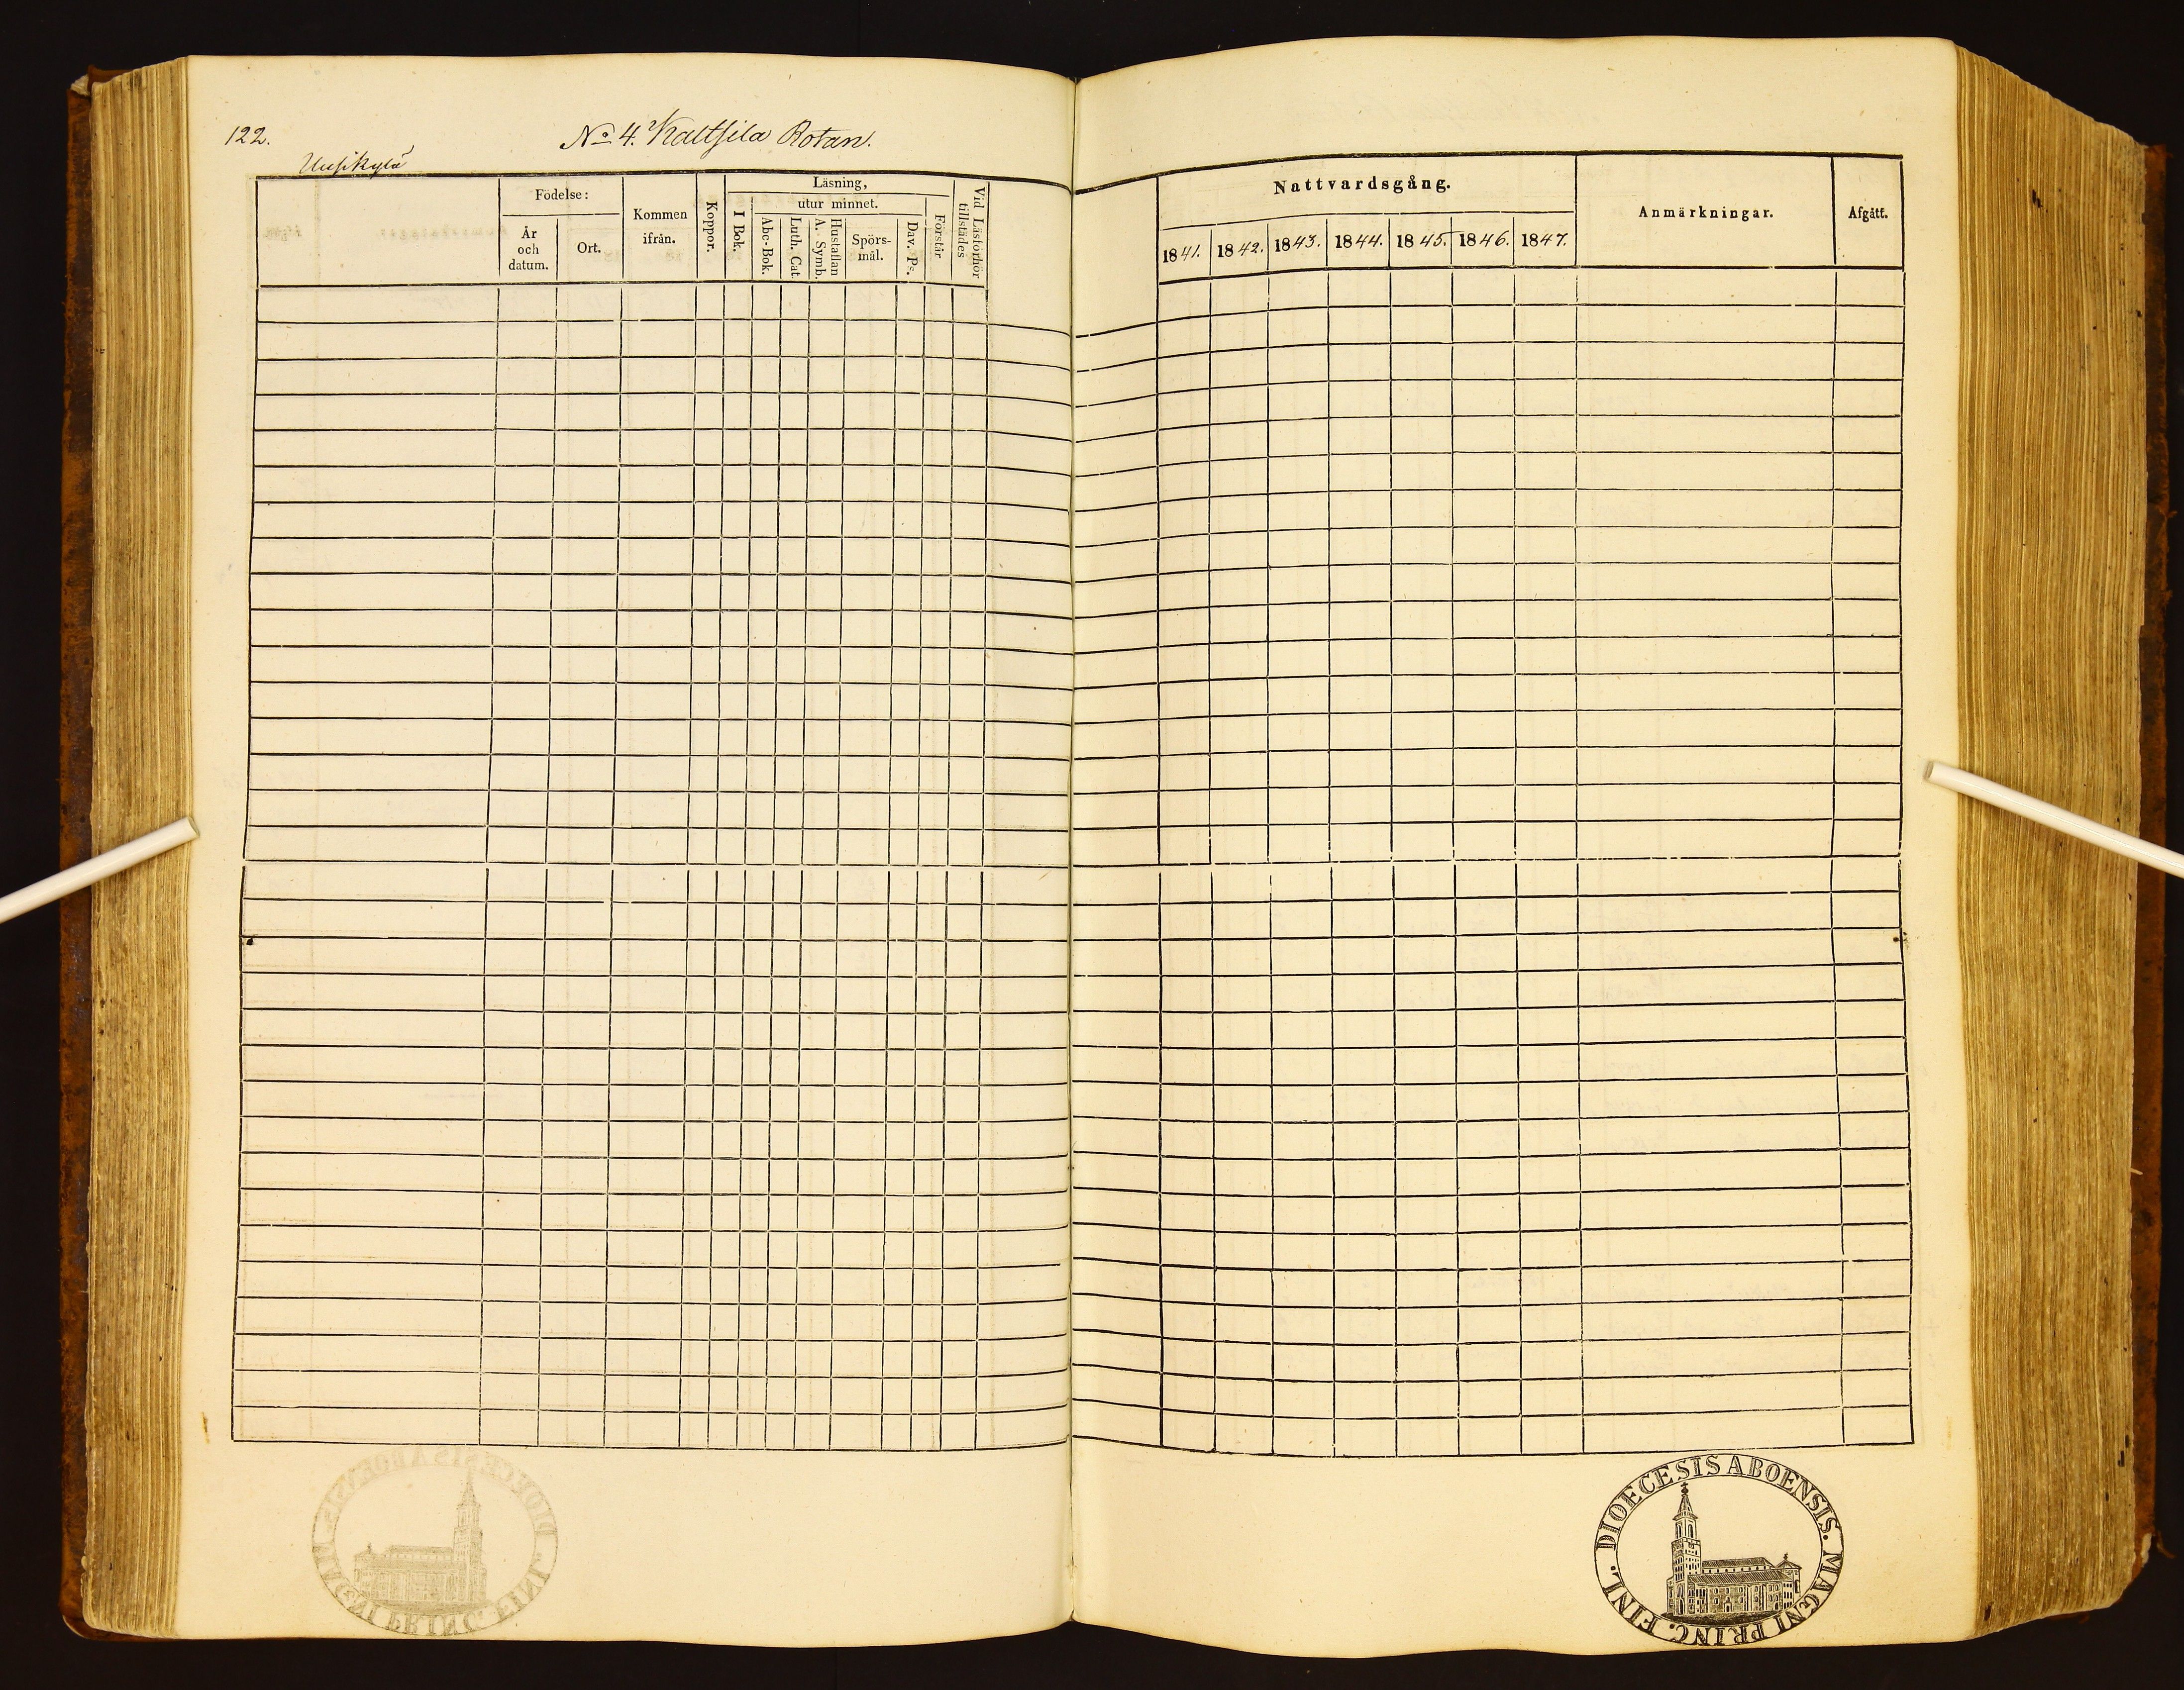 122.
No 4. Kaltsila Rotan.
Uusikylä
Födelse:
År och datum.
Ort.
Kommen ifrån.
Koppor.
Läsning,
I Bok.
utur minnet.
Abc-Bok.
Luth. Cat.
Hustaflan A. Symb.
Spörs-
mål.
Dav. Ps.
Förstår
Vid Läsförhör tillstädes
Nattvardsgång.
1841. 1842. 1843. 1844. 1845. 1846. 1847.
Anmärkningar.
Afgått.
DIOECESIS ABOENSIS. MAGNI PRINC. FINL.